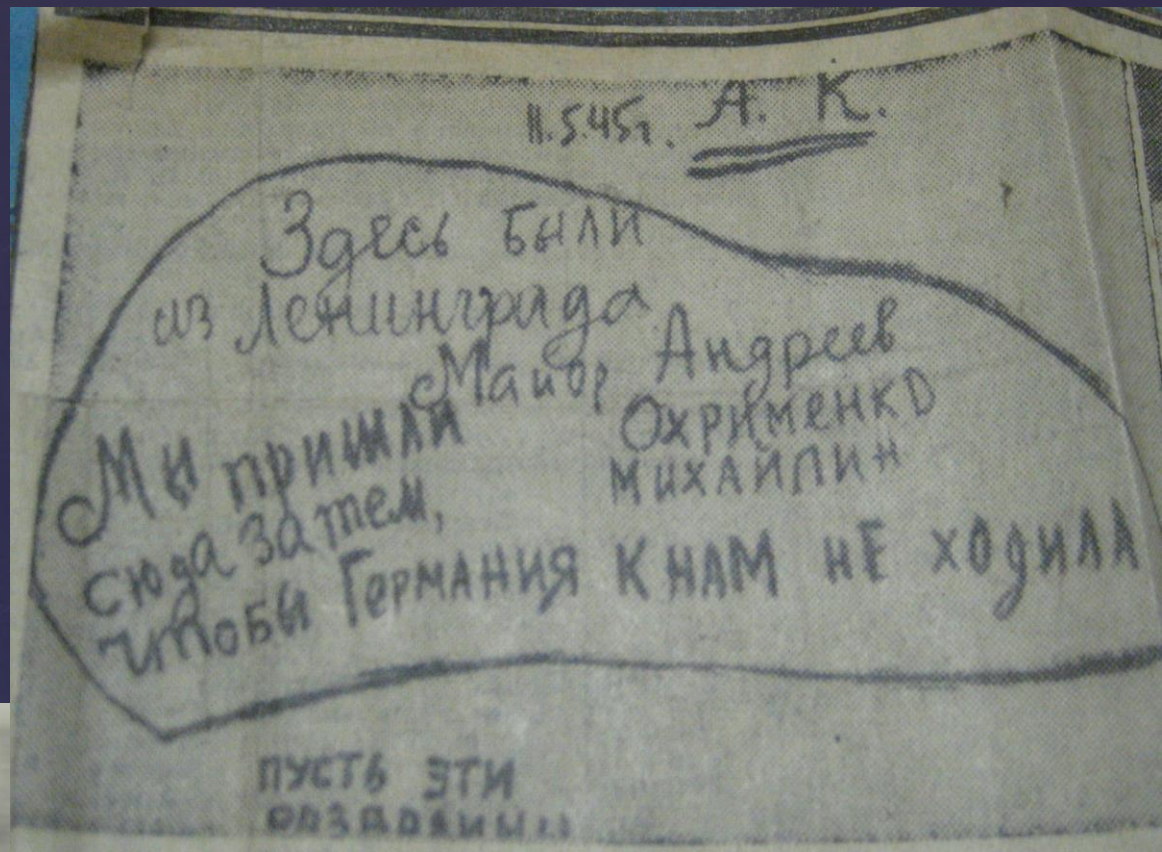 11.5.45г. А. К.
Здесь были
из Ленинграда
Майор Андреев
Охрименко
Михайлин
Мы пришли
сюда затем,
чтобы Германия к нам не ходила
ПУСТЬ ЭТИ